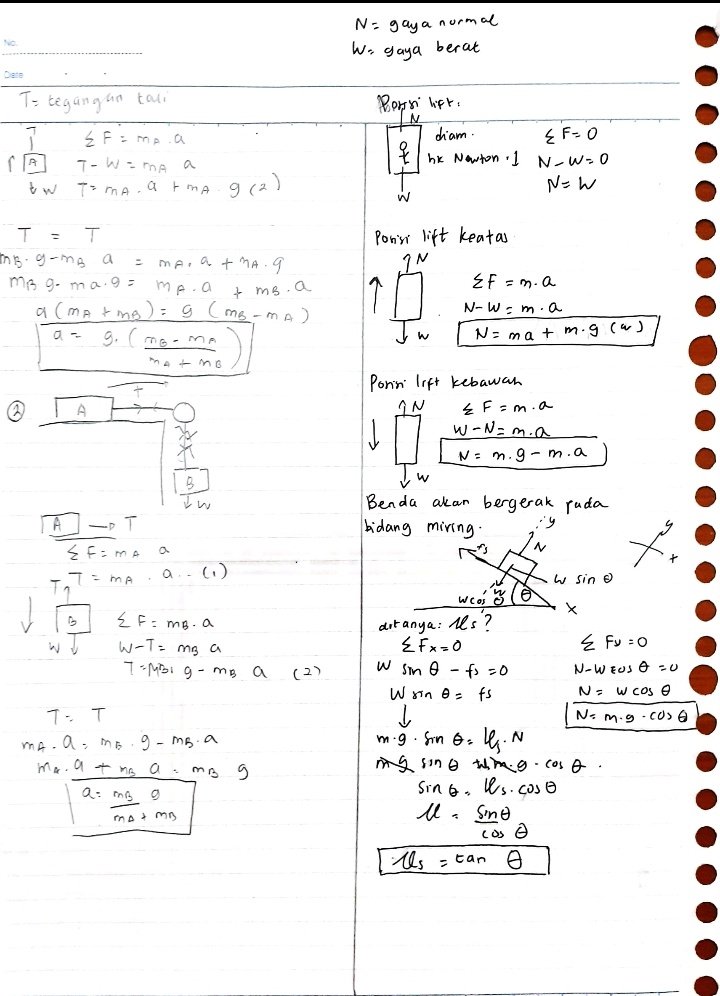 N = gaya normal
W = gaya berat
No.
Date
T = tegangan tali
T
A
W
Σ F = mA . a
T - W = mA a
T = mA . a + mA . g (2)
T = T
mB . g - mB a = mA . a + mA . g
mB g - mA . g = mA . a + mB . a
a (mA + mB) = g (mB - mA)
a = g . (mB - mA / mA + mB)
(2)
A
T
B
W
A → T
Σ F = mA a
T = mA . a .. (1)
T
B
W
Σ F = mB . a
W - T = mB a
T = mB . g - mB a (2)
T = T
mA . a = mB . g - mB . a
mA . a + mB a = mB g
a = mB g / mA + mB
Posisi lift :
N
W
diam.
hk Newton . 1
Σ F = 0
N - W = 0
N = W
Posisi lift keatas
N
W
Σ F = m . a
N - W = m . a
N = ma + m . g (w)
Posisi lift kebawah
N
W
Σ F = m . a
W - N = m . a
N = m . g - m . a
Benda akan bergerak pada
bidang miring .
y
N
fs
W sin θ
W cos θ
W
θ
x
y
x
ditanya : μs ?
Σ Fx = 0
W sin θ - fs = 0
W sin θ = fs
↓
m . g . sin θ = μs . N
m g sin θ = μs m . g . cos θ .
sin θ = μs . cos θ
μ = sin θ / cos θ
μs = tan θ
Σ Fy = 0
N - W cos θ = 0
N = w cos θ
N = m . g . cos θ